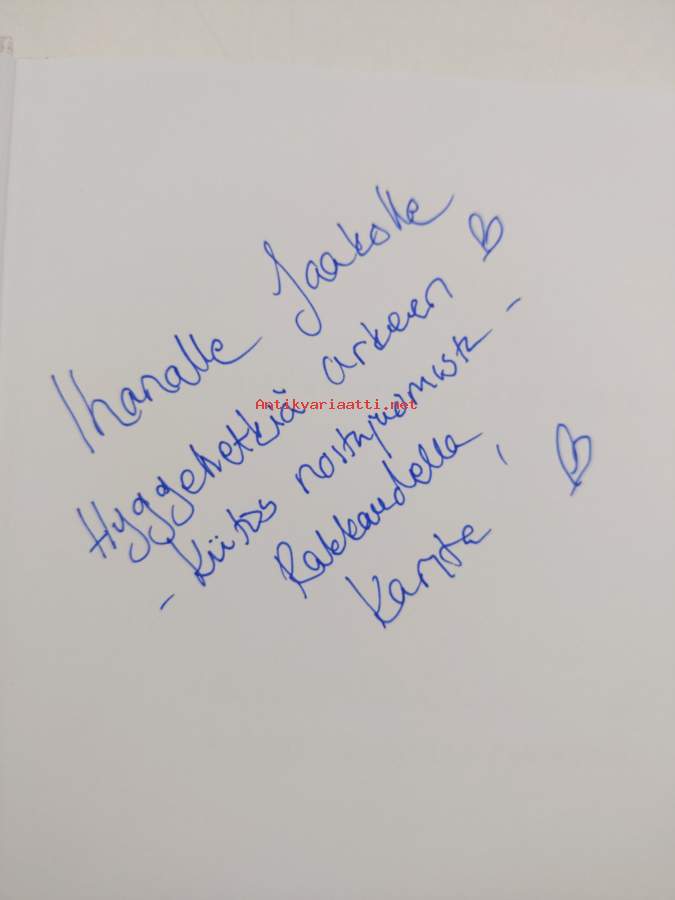 Ihanalle Jaakolle
Hyggehetkiä arkeen
Antikvariaatti.net
- Kiitos
Rakkaudella,
Karita